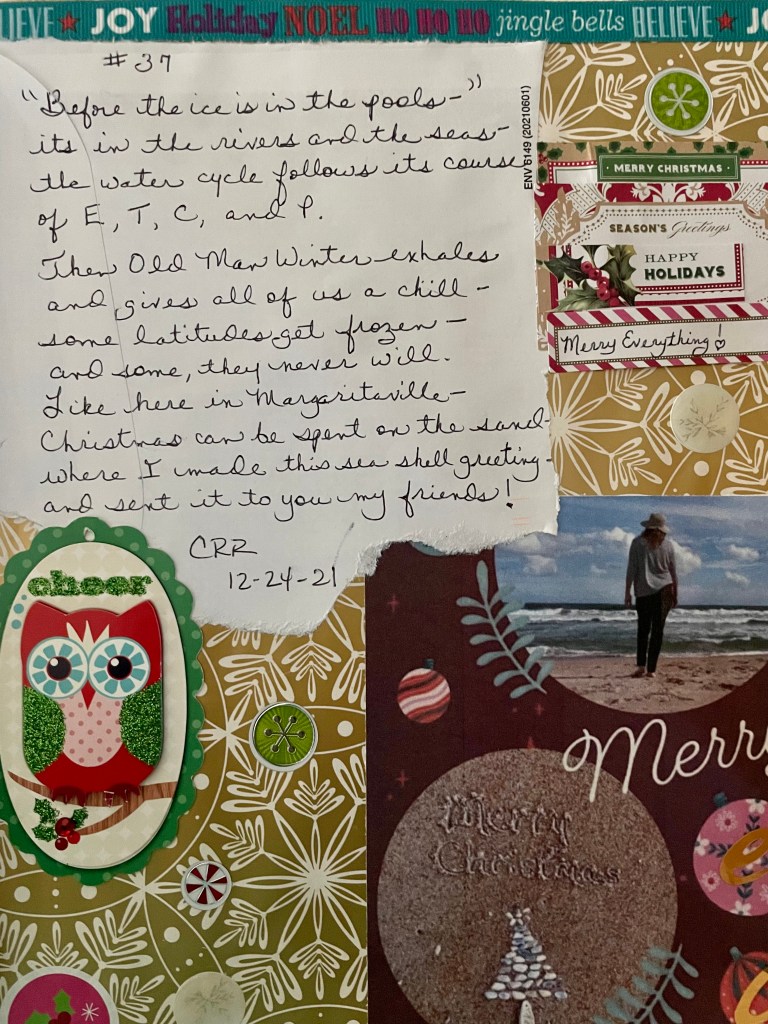 IEVE JOY Holiday NOEL HO HO HO jingle bells BELIEVE JO
#37
"Before the ice is in the pools-"
its in the rivers and the seas-
the water cycle follows its course
of E, T, C, and P.
Then Old Man Winter exhales
and gives all of us a chill-
some latitudes get frozen-
and some, they never will.
Like here in Margaritaville-
Christmas can be spent on the sand-
where I made this sea shell greeting-
and sent it to you my friends!
CRR
12-24-21
ENV 6149 (20210601)
MERRY CHRISTMAS
SEASON'S Greetings
HAPPY
HOLIDAYS
Merry Everything!
cheer
Merry
Merry
Christmas
e